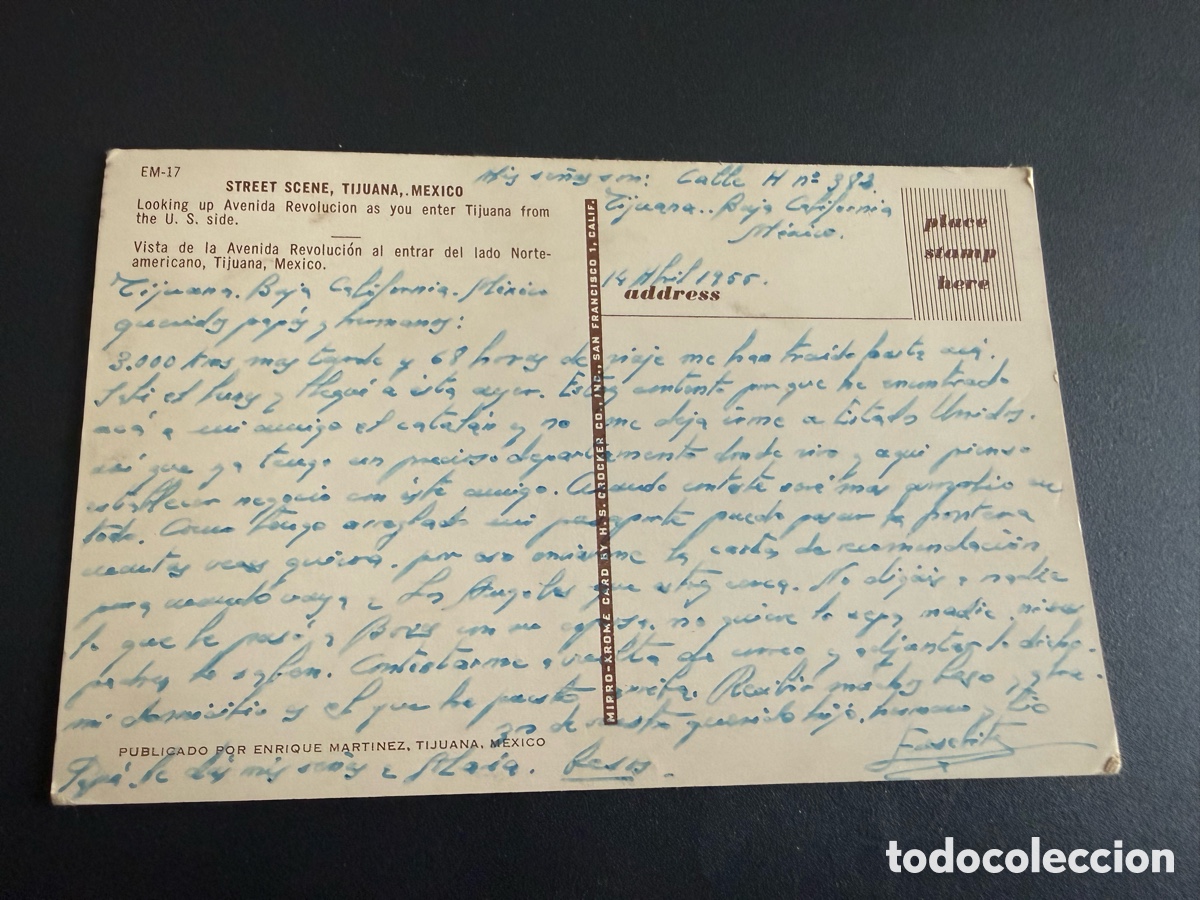 EM-17
STREET SCENE, TIJUANA,.MEXICO
Looking up Avenida Revolucion as you enter Tijuana from
the U. S. side.
Vista de la Avenida Revolución al entrar del lado Norte-
americano, Tijuana, Mexico.
Mis señas son: Calle H nº 382.
Tijuana.. Baja California
México.
14 Abril 1955.
address
place
stamp
here
MIRRO-KROME CARD BY H. S. CROCKER CO., INC., SAN FRANCISCO 1, CALIF.
Tijuana. Baja California. México
queridos papás y hermanos:
3.000 kms mas tarde y 68 horas de viaje me han traido hasta acá.
Salí el lunes y llegué a ésta ayer. Estoy contento porque he encontrado
acá a mi amigo el catalán y no me deja irme a Estados Unidos.
así que ya tengo un precioso departamento donde vivo y aqui pienso
establecer negocio con éste amigo. Cuando conteste seré mas
todo. Como tengo arreglado mi pasaporte puedo pasar la frontera
cuantas veces quiera, por eso enviarme la carta de recomendación
para cuando vaya a Los Angeles que está cerca. No digáis a nadie
lo que le pasó a con no quiere lo sepa nadie, ni sus
padres lo saben. Contestarme a vuelta de correo y
mi domicilio es el que he puesto arriba. Recibir muchos besos y
de vuestro querido hijo, hermano y tio
PUBLICADO POR ENRIQUE MARTINEZ, TIJUANA, MEXICO
Papá le das mis señas a María. Besos.
todocoleccion